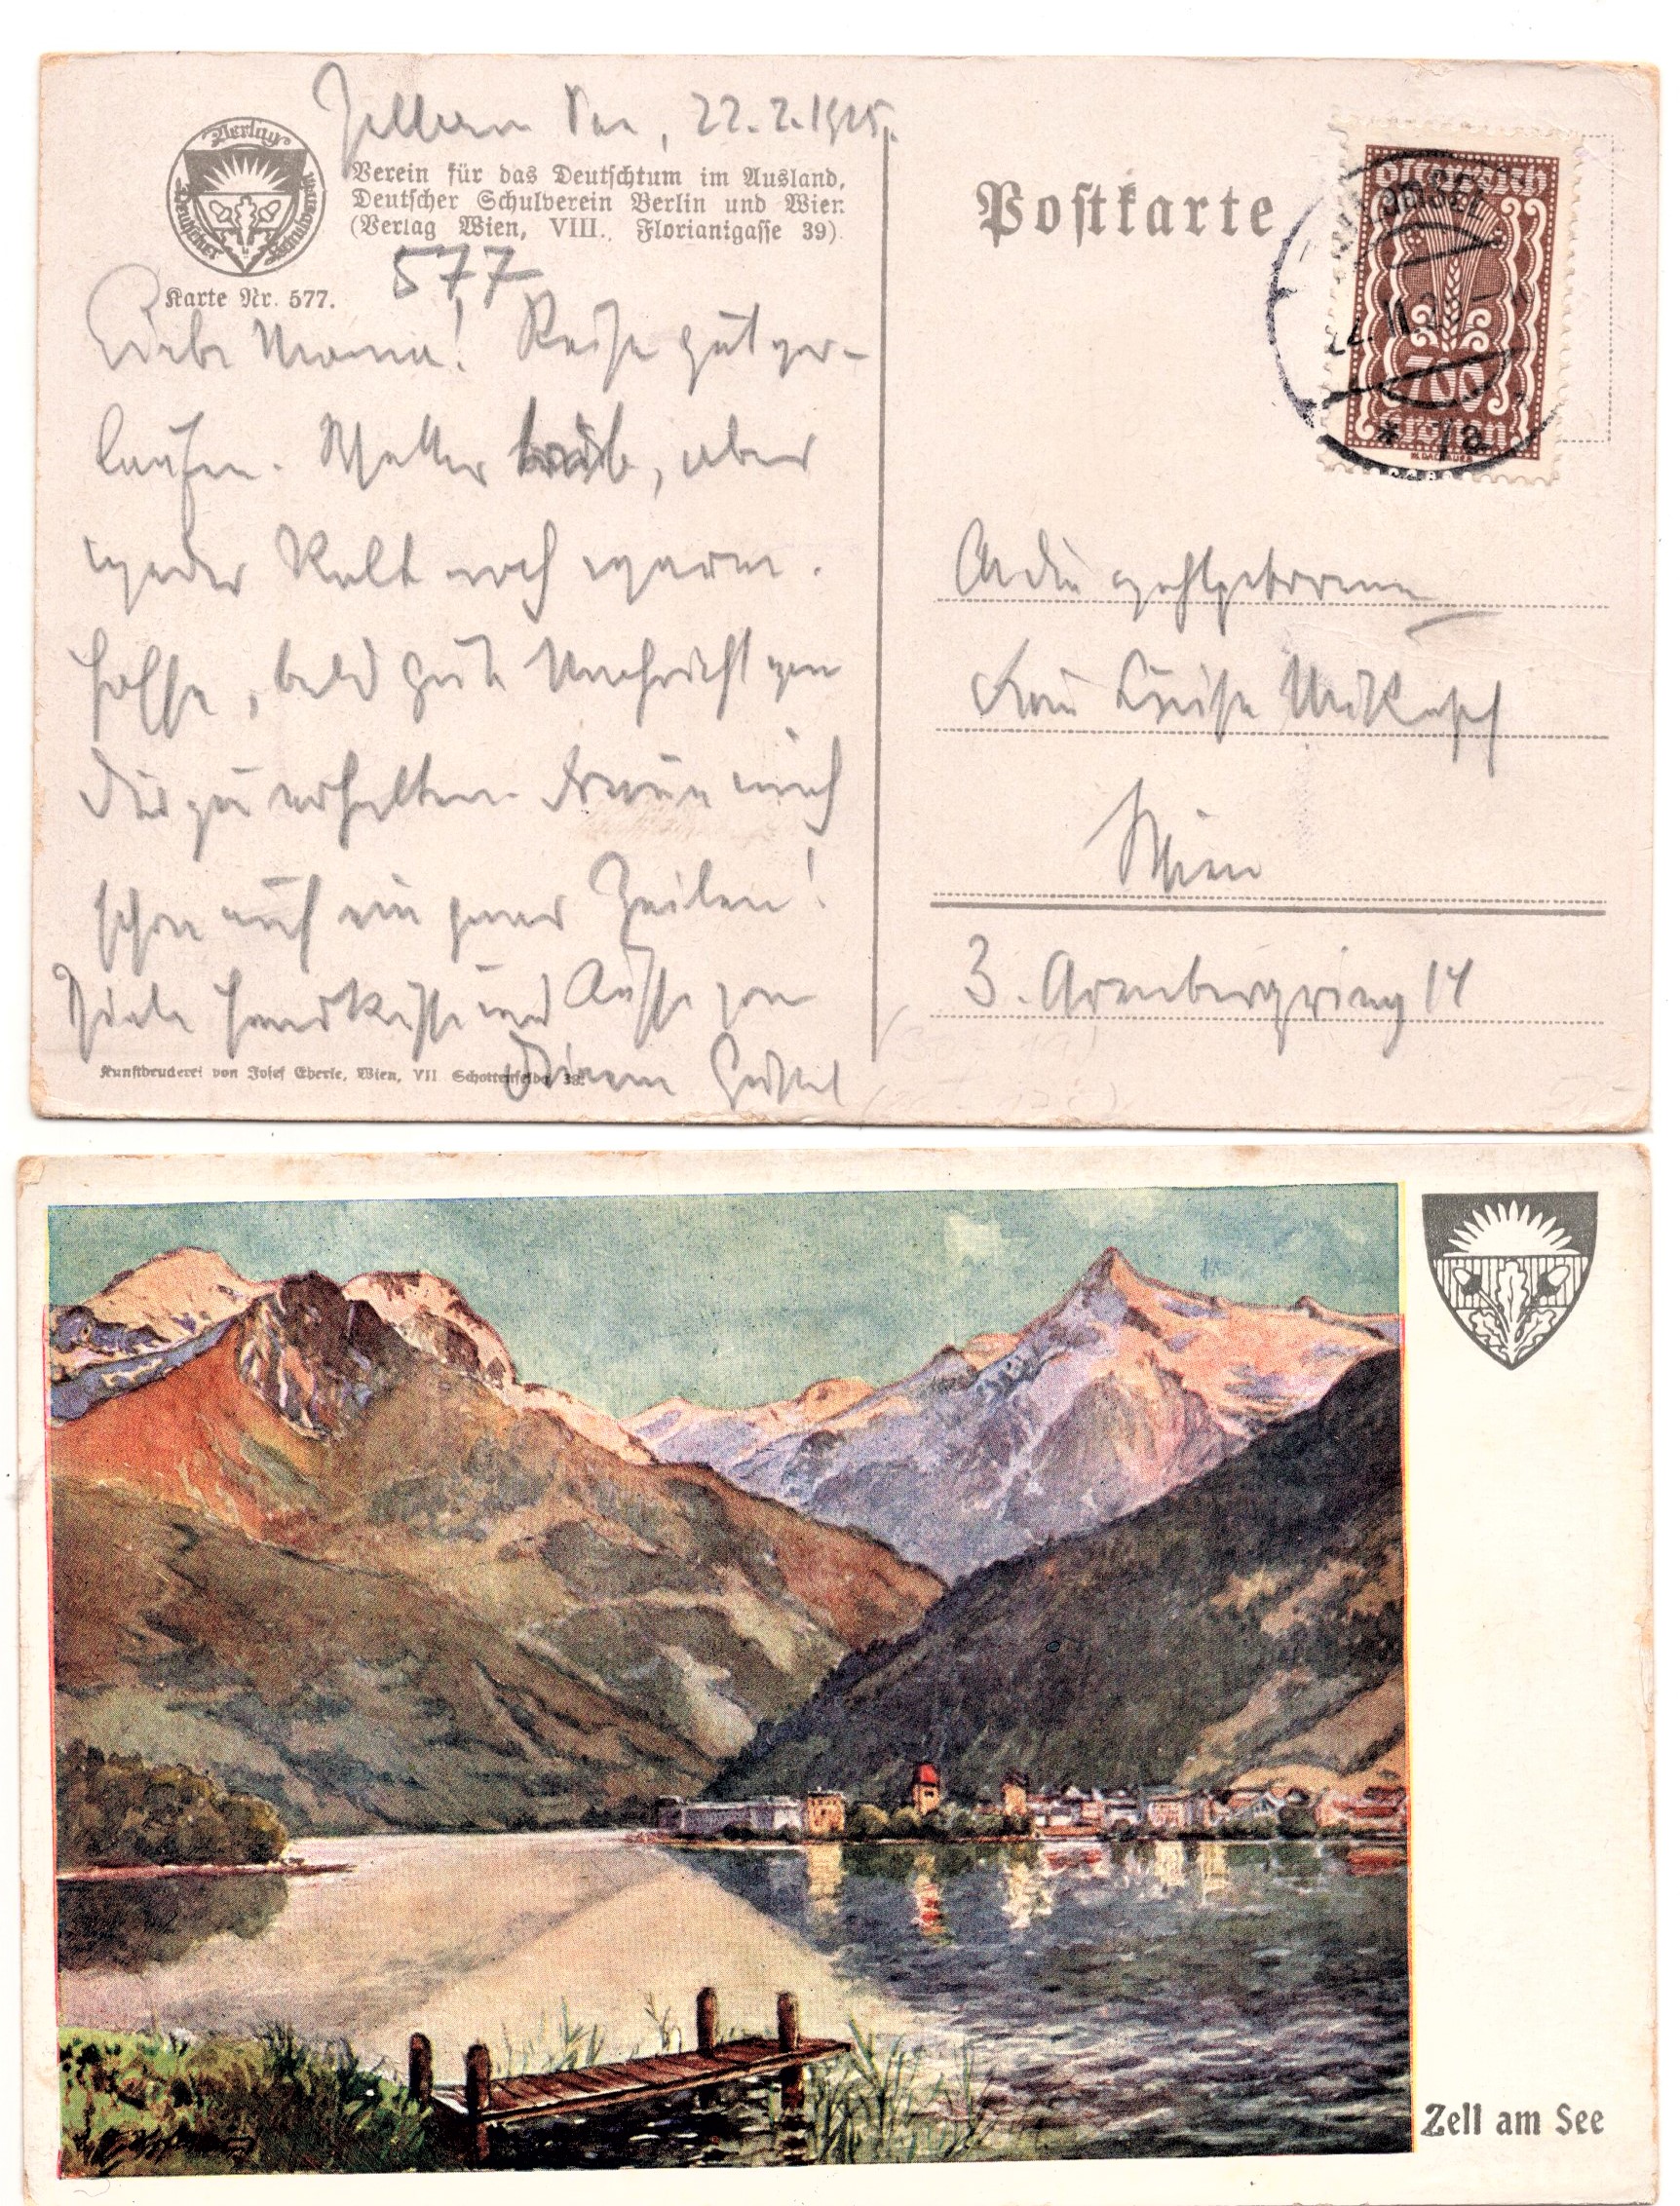 Zell am See, 22.2.1925.
Verlag
Deutscher Schulverein
Verein für das Deutschtum im Ausland,
Deutscher Schulverein Berlin und Wien
(Verlag Wien, VIII., Florianigasse 39).
Karte Nr. 577.
577
Liebe Mama! Reise gut ver-
laufen. Wetter trüb, aber
weder kalt noch warm.
Hoffe, bald gute Nachricht von
Dir zu erhalten. Freue mich
schon auf ein paar Zeilen!
Viele Handküsse und Küsse von
Deinem
Kunstdruckerei von Josef Eberle, Wien, VII Schottenfeldg. 38.
Postkarte
ZELL AM SEE
22. II. 25
* 1a
Österreich
700
Kronen
An die wohlgeborene
Frau Luise
Wien
3. Arenbergring 14
Zell am See